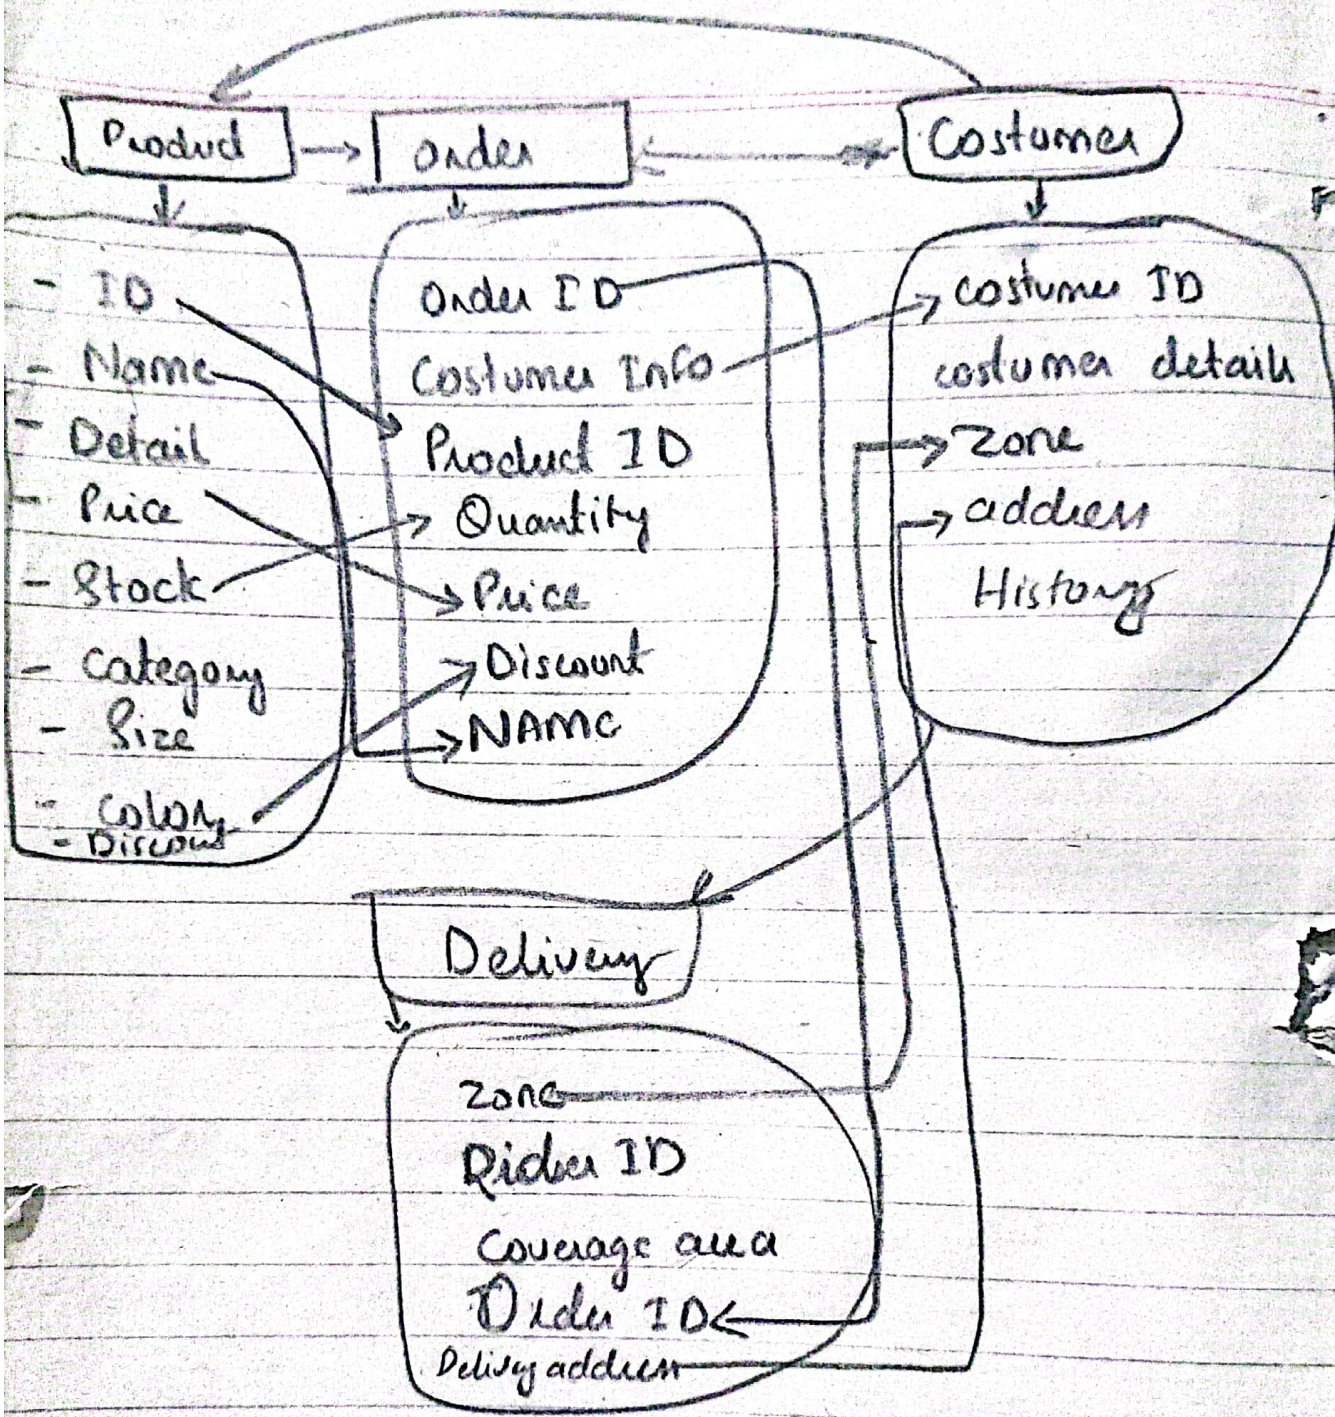 Product
Order
Costumer
- ID
- Name
- Detail
- Price
- Stock
- Category
- Size
- Color
- Discount
Order ID
Costumer Info
Product ID
Quantity
Price
Discount
NAME
costumer ID
costumer details
zone
address
History
Delivery
zone
Rider ID
Coverage area
Order ID
Delivery address